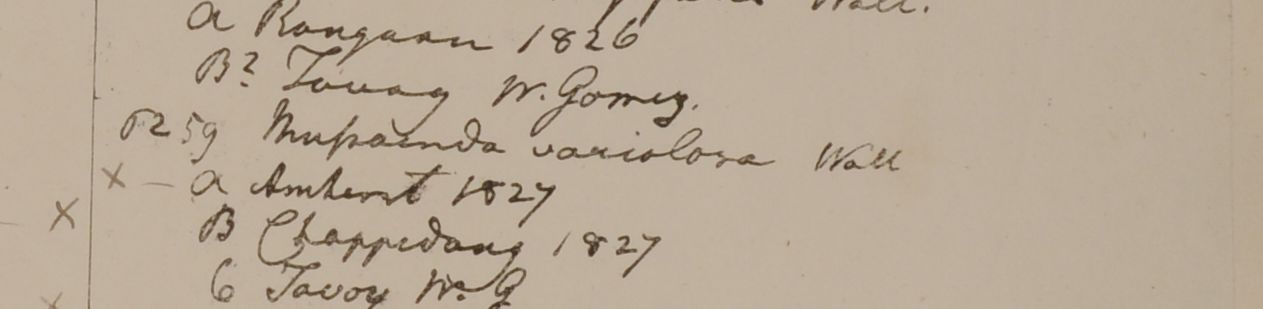 Wall.
a Rangaon 1826
B? Tavoy W. Gomez.
6259 Mussaenda variolosa Wall
x – a Amherst 1827
x B Chappedong 1827
C Tavoy W. G
x